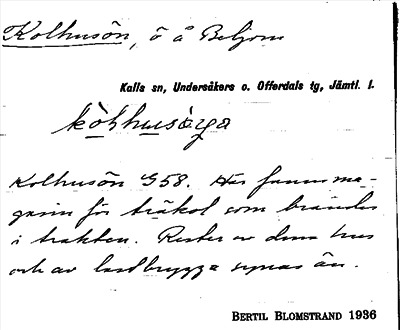 Kolhusön, ö å Beljom
Kalls sn, Undersåkers o. Offerdals tg, Jämtl. l.
kòlhusö̀ya
Kolhusön G58. Här fanns ma-
gasin för träkol som brändes
i trakten. Rester av detta hus
och av lastbrygga synas än.
BERTIL BLOMSTRAND 1936